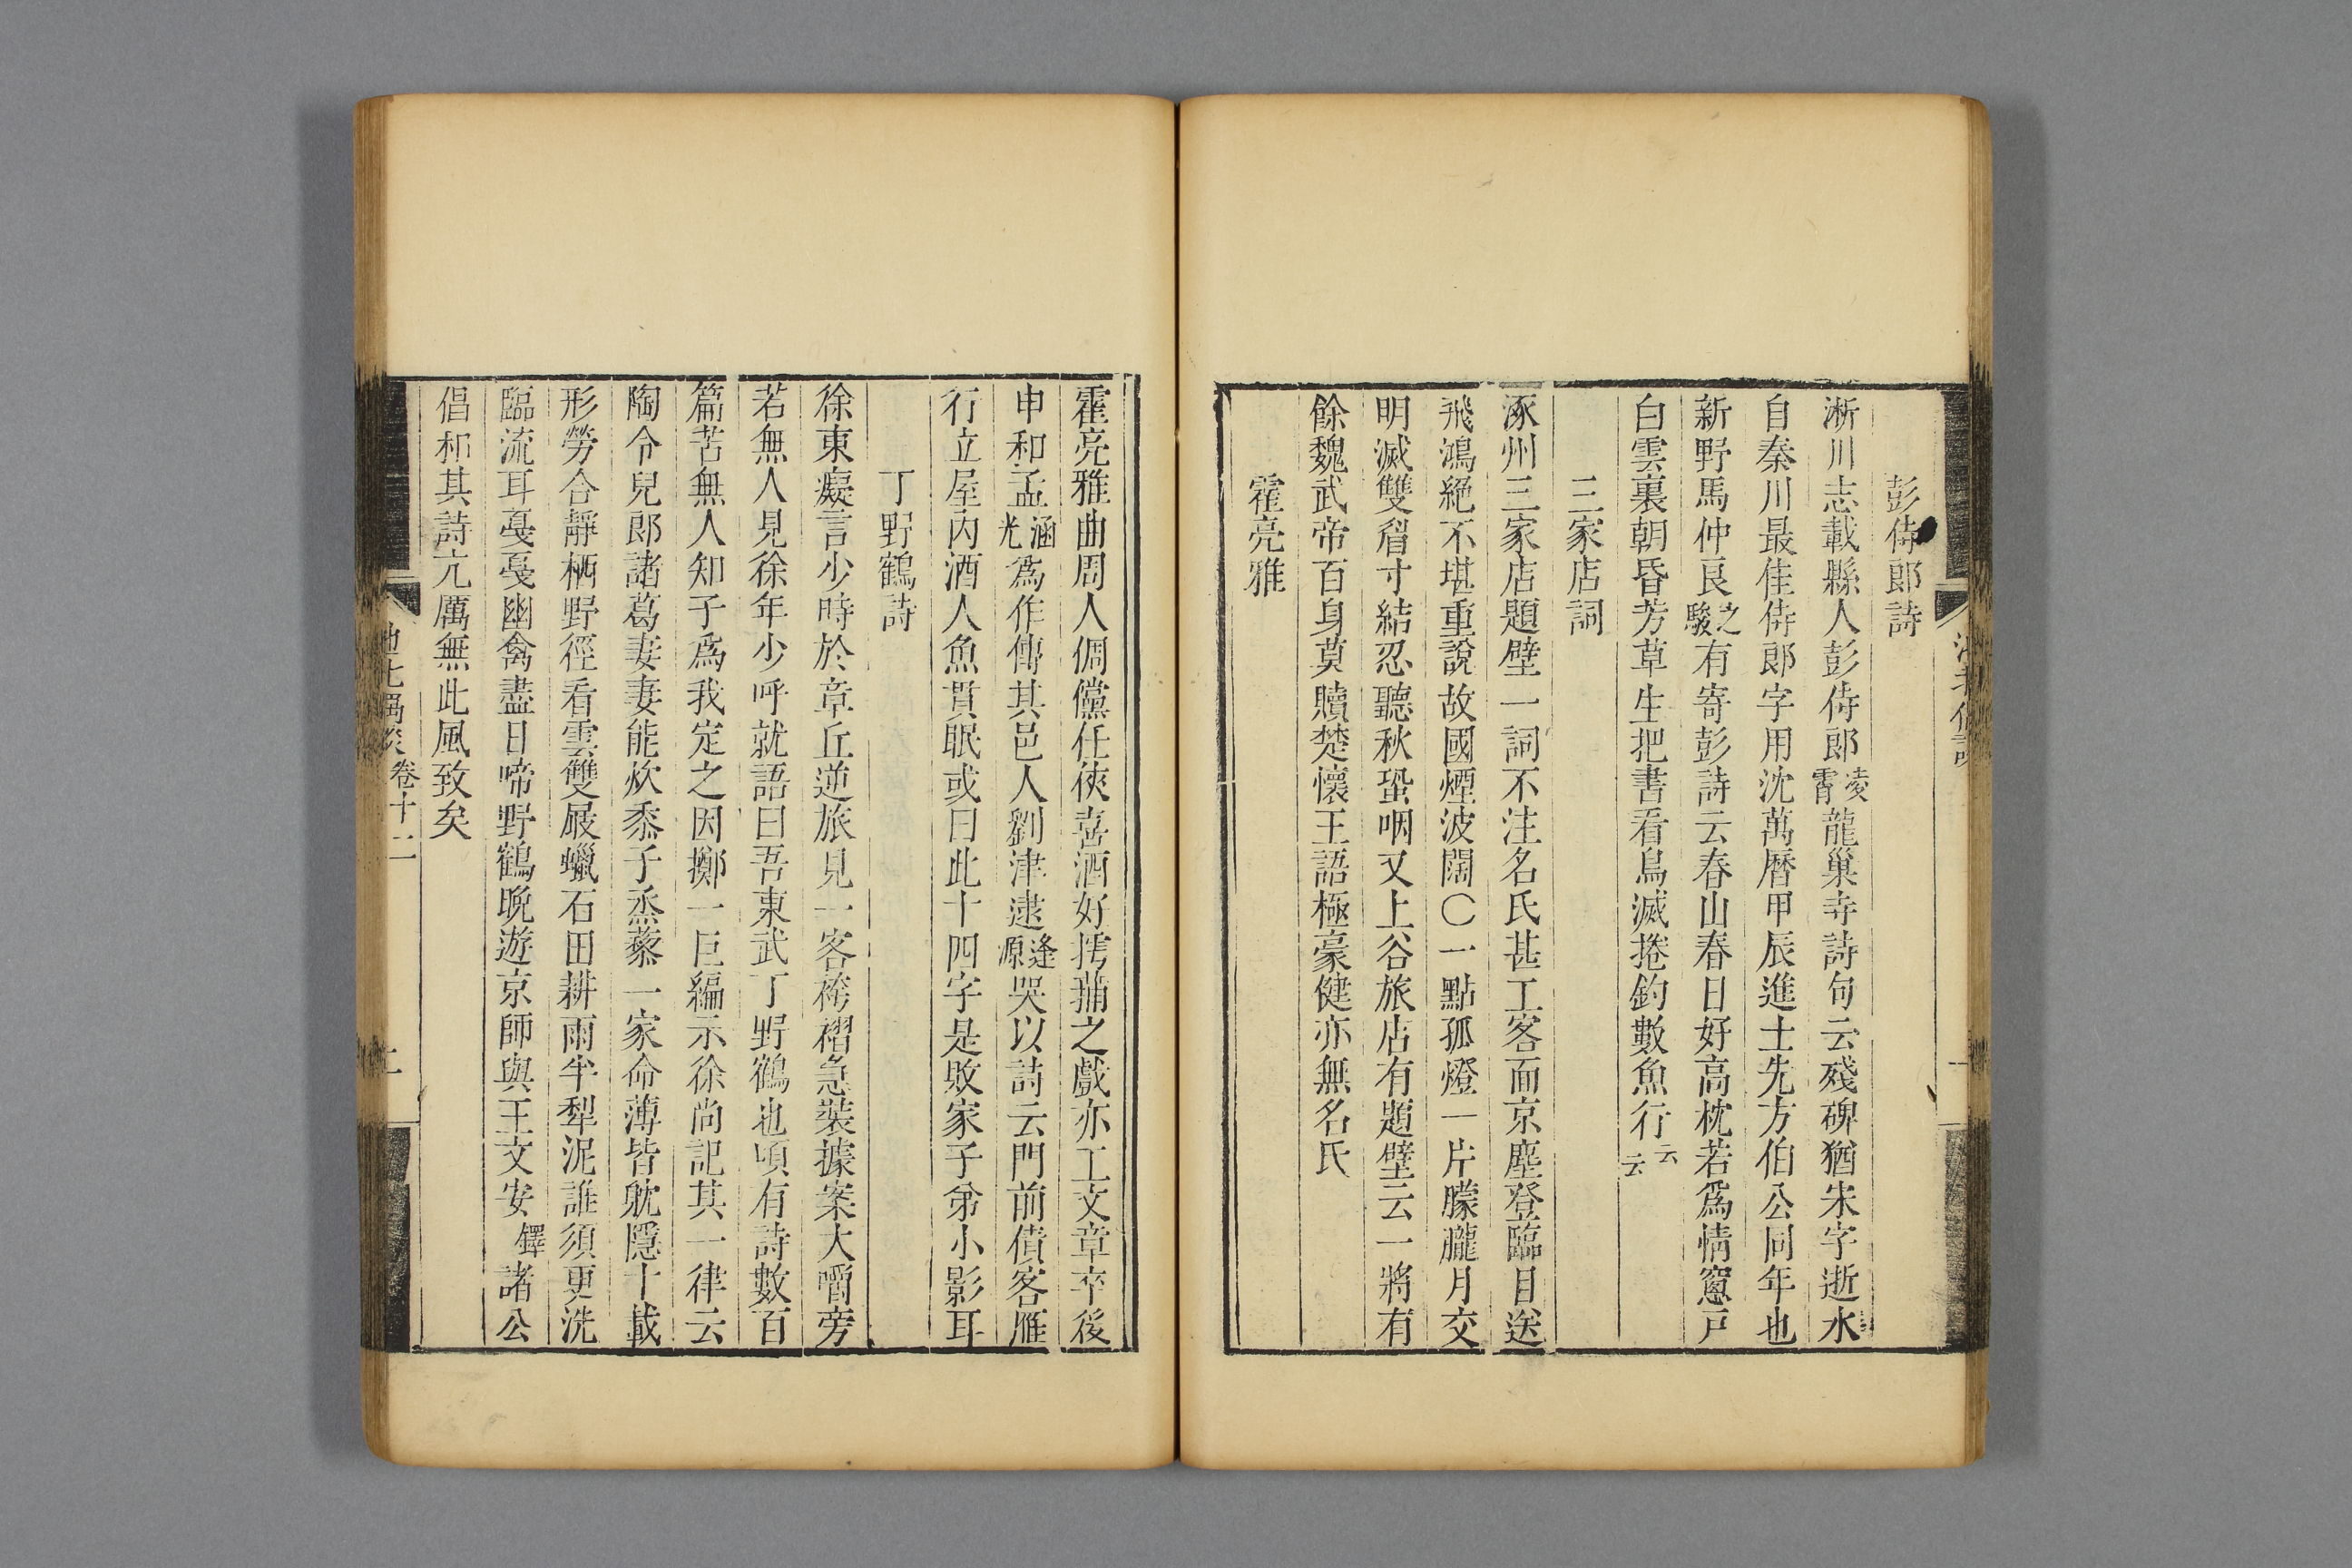 彭侍郎詩
淅川志載縣人彭侍郎凌霄龍巢寺詩句云殘碑猶宋字逝水
自秦川最佳侍郎字用沈萬曆甲辰進士先方伯公同年也
新野馬仲良之駿有寄彭詩云春山春日好高枕若爲情窻戸
白雲裏朝昏芳草生把書看鳥滅捲釣數魚行云云
三家店詞
涿州三家店題壁一詞不注名氏甚工客面京塵登臨目送
飛鴻絕不堪重說故國煙波闊〇一點孤燈一片朦朧月交
明滅雙眉寸結忍聽秋蛩咽又上谷旅店有題壁云一將有
餘魏武帝百身莫贖楚懷王語極豪健亦無名氏
霍亮雅
霍亮雅曲周人倜儻任俠喜酒好摴蒱之戲亦工文章卒後
申和孟涵光爲作傳其邑人劉津逮逢源哭以詩云門前債客雁
行立屋內酒人魚貫眠或曰此十四字是敗家子弟小影耳
丁野鶴詩
徐東癡言少時於章丘逆旅見一客袴褶急裝據案大嚼旁
若無人見徐年少呼就語曰吾東武丁野鶴也頃有詩數百
篇苦無人知子爲我定之因擲一巨編示徐尚記其一律云
陶令兒郎諸葛妻妻能炊黍子烝藜一家命薄皆躭隱十載
形勞合靜栖野徑看雲雙屐蠟石田耕雨半犁泥誰須更洗
臨流耳戞戞幽禽盡日啼野鶴晚遊京師與王文安鐸諸公
倡和其詩亢厲無此風致矣
池北偶談 卷十二 二